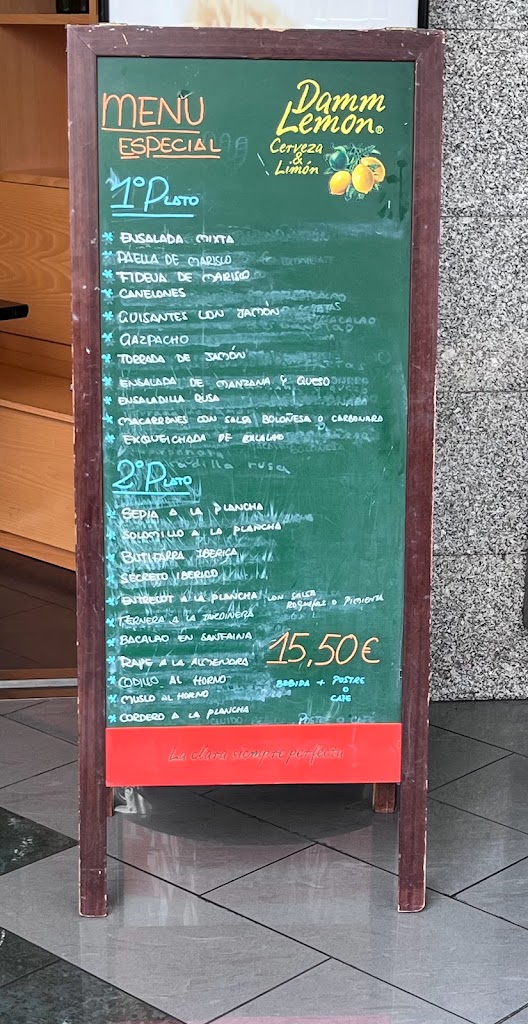 MENU
ESPECIAL
Damm
Lemon®
Cerveza
&
Limón
1º PLATO
* ENSALADA MIXTA
* PAELLA DE MARISCO
* FIDEUA DE MARISCO
* CANELONES
* GUISANTES CON JAMÓN
* GAZPACHO
* TORRADA DE JAMÓN
* ENSALADA DE MANZANA Y QUESO
* ENSALADILLA RUSA
* MACARRONES CON SALSA BOLOÑESA O CARBONARA
* EXQUEICHADA DE BACALAO
2º PLATO
* SEPIA A LA PLANCHA
* SOLOMILLO A LA PLANCHA
* BUTIFARRA IBERICA
* SECRETO IBERICO
* ENTRECOT A LA PLANCHA CON SALSA
ROQUEFORT O PIMIENTA
* TERNERA A LA JARDINERA
* BACALAO EN SANFAINA
* RAPE A LA ALMENDRA
* CODILLO AL HORNO
* MUSLO AL HORNO
* CORDERO A LA PLANCHA
15,50€
BEBIDA + POSTRE
O
CAFE
La clara siempre perfecta